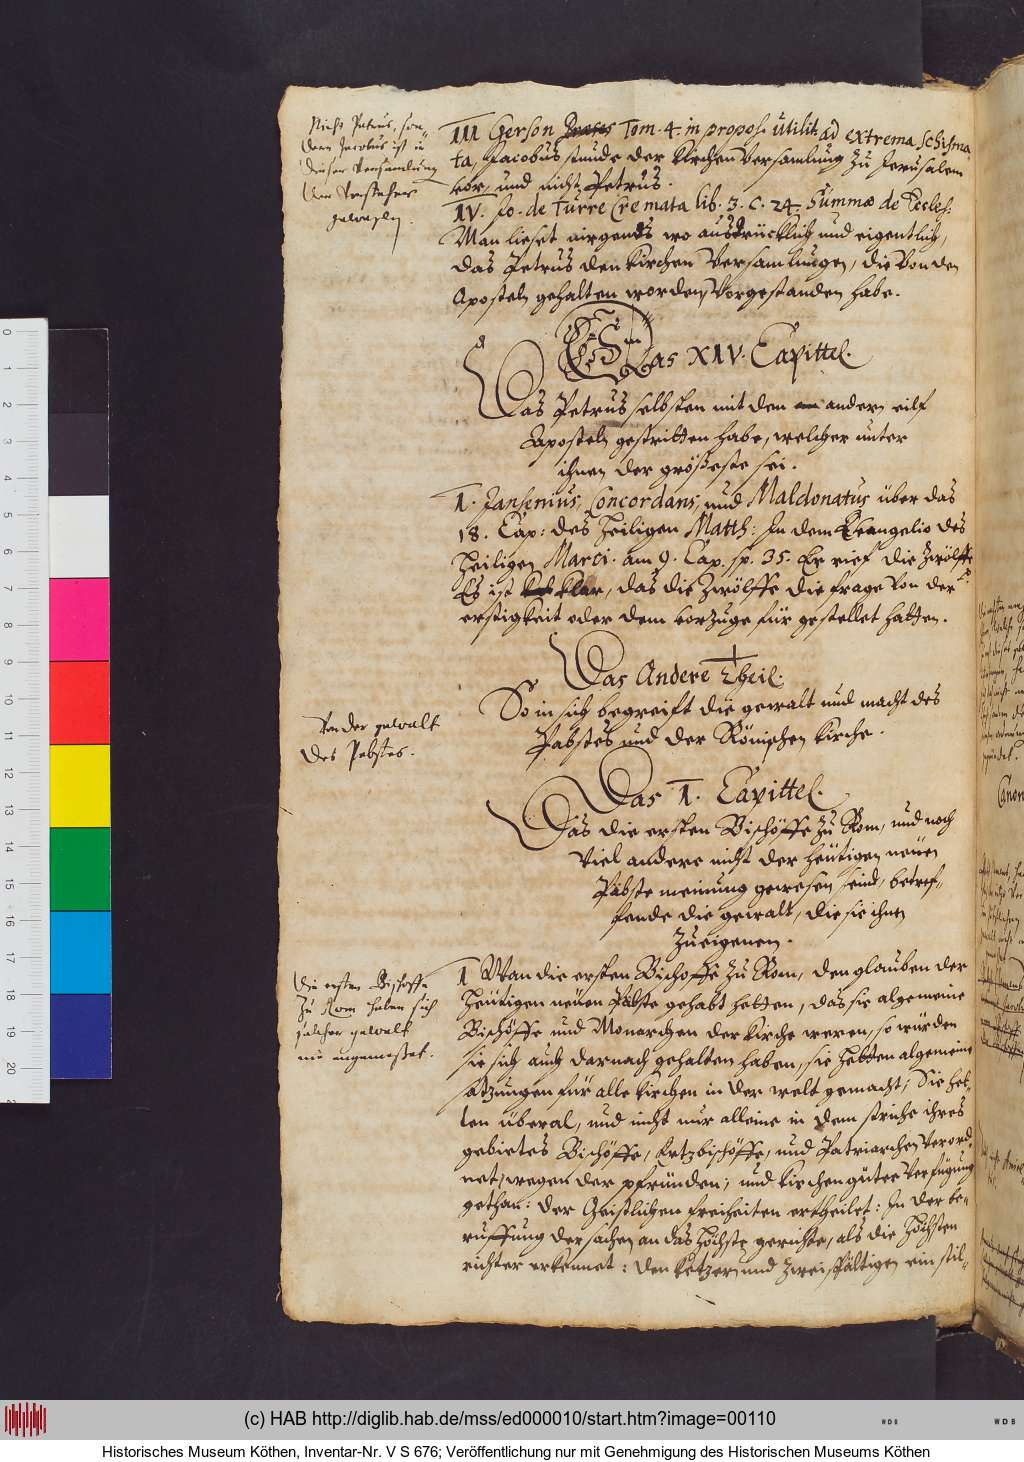 Nicht Petrus, son„
dern Jacobus ist in
dieser Versamlung
der Vorsteher
gewesen.
III Gerson Tom. 4. in propos. utilit. ad extrema schisma-
ta, Jacobus stunde der Kirchen Versamlung zu Jerusalem
vor, und nicht Petrus.
IV. Jo. de Turre Cremata lib. 3. c. 24. Summæ de Eccles:
Man lieset nirgends wo ausdrücklich und eigentlich,
das Petrus den Kirchen Versamlungen, die von den
Aposteln gehalten worden, Vorgestanden habe.
Das XIV. Capittel.
Das Petrus selbsten mit den andern eilf
Aposteln gestritten habe, welcher unter
ihnen der größeste sei.
I. Jansenius, Concordans, und Maldonatus über das
18. Cap: des Heiligen Matth: In dem Evangelio des
Heiligen Marci. am 9. Cap. sp. 35. Er rief die Zwölffe
Es ist klar, das die Zwölffe die frage von der
erstigkeit oder dem vorzuge für gestellet hatten.
Das Andere Theil.
So in sich begreift die gewalt und macht des
Pabstes und der Römischen Kirche.
Von der gewalt
des Pabstes.
Das I. Capittel.
Das die ersten Bischöffe zu Rom, und noch
viel andere nicht der heütigen neüen
Päbste meinung gewesen seind, betref„
fende die gewalt, die sie ihnen
zueigenen.
Die ersten Bischoffe
zu Rom haben sich
solcher gewalt
nie angemasset.
I Wan die ersten Bischoffe zu Rom, den glauben der
heütigen neüen Päbste gehabt hetten, das sie algemeine
Bischöffe und Monarchen der Kirche weren, so würden
sie sich auch darnach gehalten haben, sie hetten algemeine
satzungen für alle Kirchen in der welt gemacht; Sie het„
ten überal, und nicht nur alleine in dem striche ihres
gebietes Bischöffe, Ertzbischöffe, und Patriarchen verord„
net, wegen der pfründen; und Kirchengüter Verfügung
gethan: der Geistlichen freiheiten ertheilet: In der be„
ruffung der sachen an das Höchste gerichte, als die Höchsten
richter erkennet: den Ketzern und Zweispältigen ein stil„
(c) HAB http://diglib.hab.de/mss/ed000010/start.htm?image=00110
Historisches Museum Köthen, Inventar-Nr. V S 676; Veröffentlichung nur mit Genehmigung des Historischen Museums Köthen